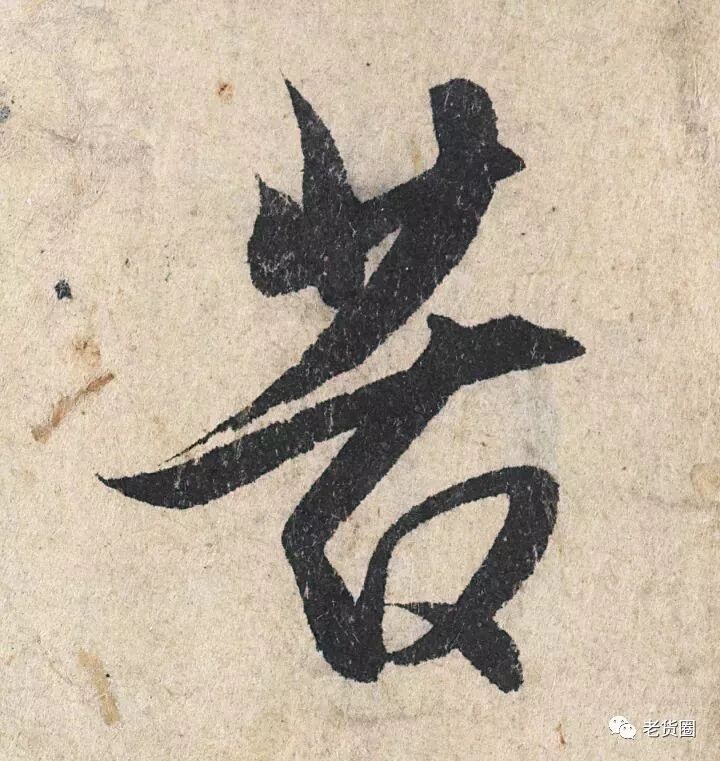 若
老货圈